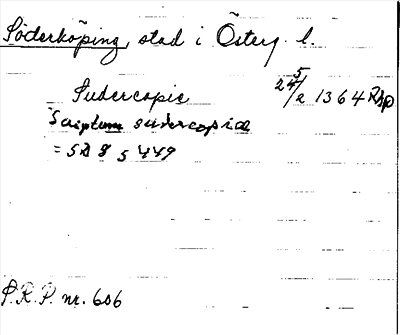 Söderköping, stad i Österg. l.
Sudercopie 24/2 1364 Rsp
Scriptum sudercopia
= SD 8 s 449
P.R.P. nr. 606